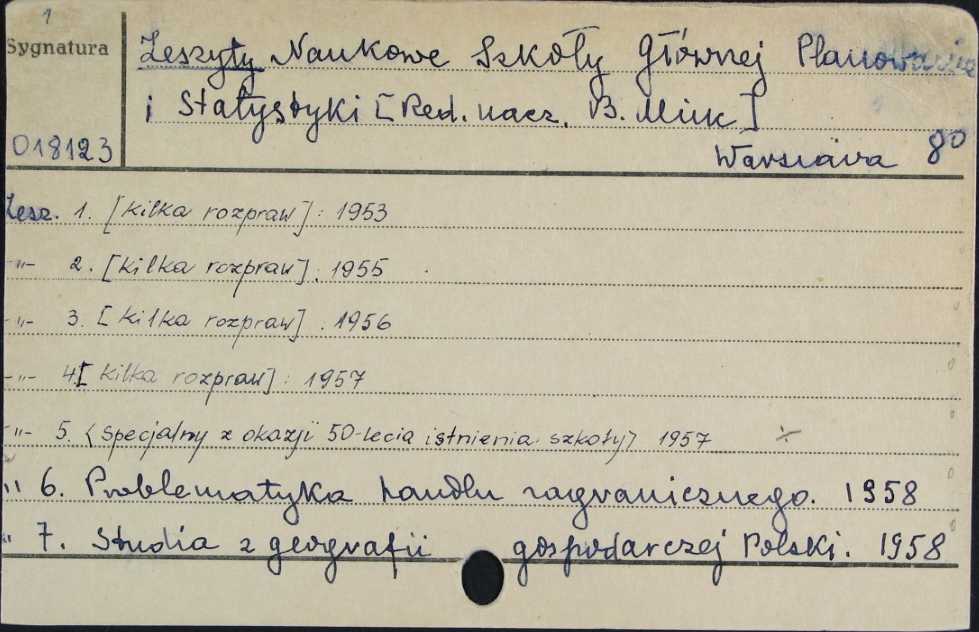 1
Sygnatura
Zeszyty Naukowe Szkoły Głównej Planowania
i Statystyki [Red. nacz. B. Minc]
018123
Warszawa 8º
Zesz. 1. [kilka rozpraw]: 1953
-"- 2. [kilka rozpraw]: 1955
-"- 3. [kilka rozpraw]: 1956
-"- 4. [kilka rozpraw]: 1957
-"- 5. <specjalny z okazji 50-lecia istnienia szkoły> 1957
" 6. Problematyka handlu zagranicznego. 1958
" 7. Studia z geografii gospodarczej Polski. 1958